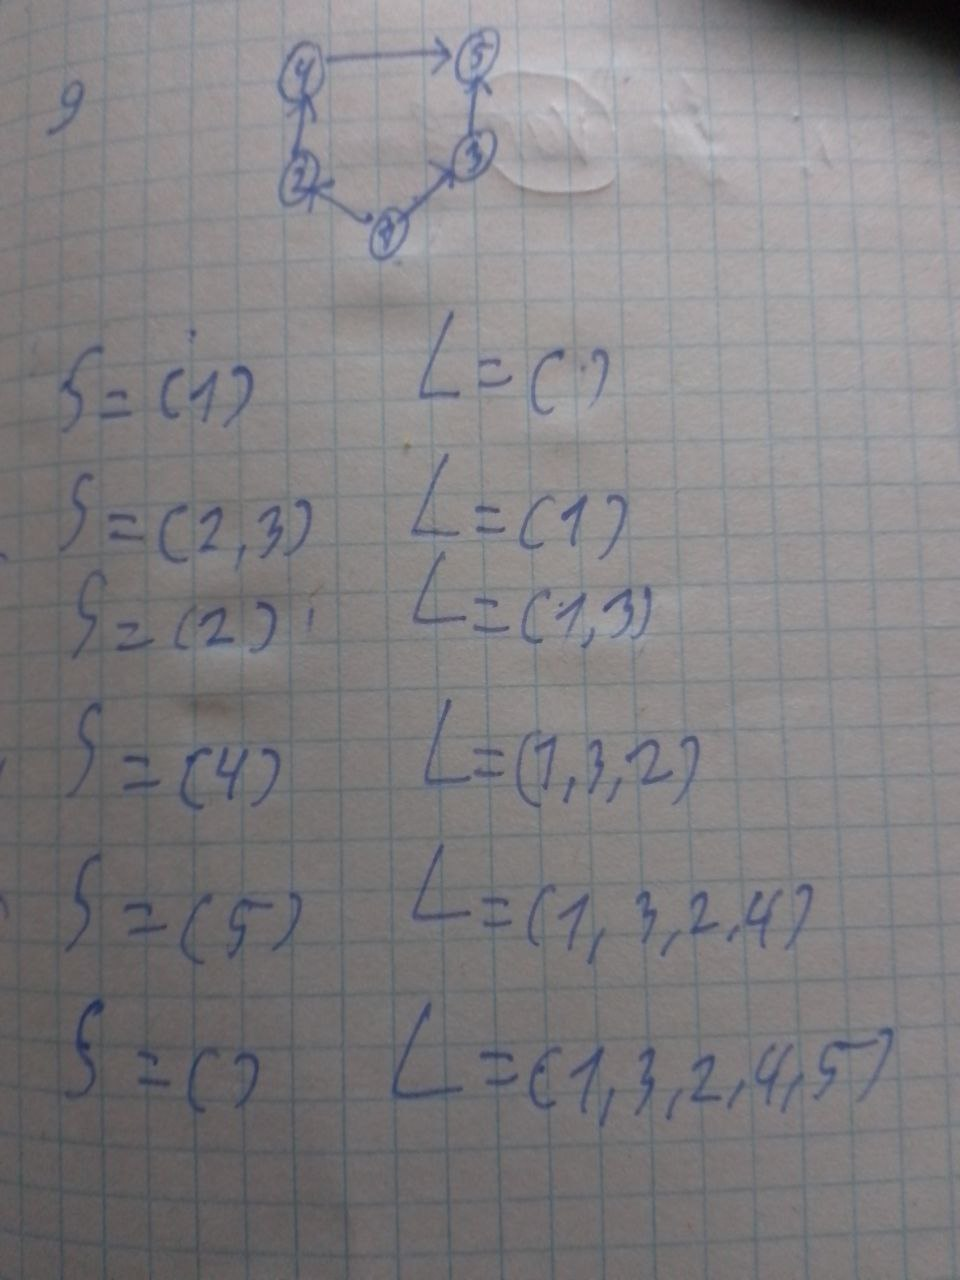 9
4 5
2 3
1
S=(1) L=()
S=(2,3) L=(1)
S=(2) L=(1,3)
S=(4) L=(1,3,2)
S=(5) L=(1,3,2,4)
S=() L=(1,3,2,4,5)